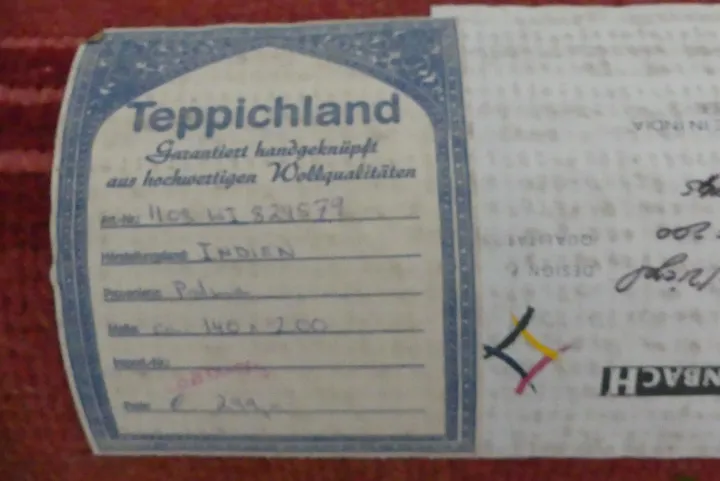 Teppichland
Garantiert handgeknüpft
aus hochwertigen Wollqualitäten
Art.-Nr.: 1108 WI 824579
Herstellungsland: INDIEN
Provenienz:
Maße: ca. 140 x 200
Import.-Nr.:
€ 299,-
IN INDIA
200
QUALITÄT
DESIGN
NBACH